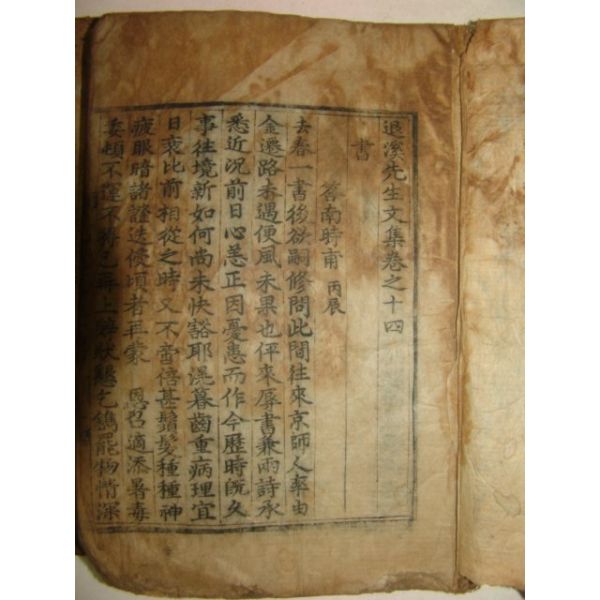 退溪先生文集卷之十四
書
答南時甫 丙辰
去春一書後欲嗣修問此間往來京師人率由
金遷路未遇便風未果也伻來辱書兼兩詩承
悉近況前日心恙正因憂患而作今歷時旣久
事往境新如何尚未快豁耶滉暮齒重病理宜
日衰比前相從之時又不啻倍甚鬚髮種種神
疲眼暗諸證迭侵頃者再蒙 恩召適添暑毒
委頓不運不得已再上狀懇乞鐫罷物情深